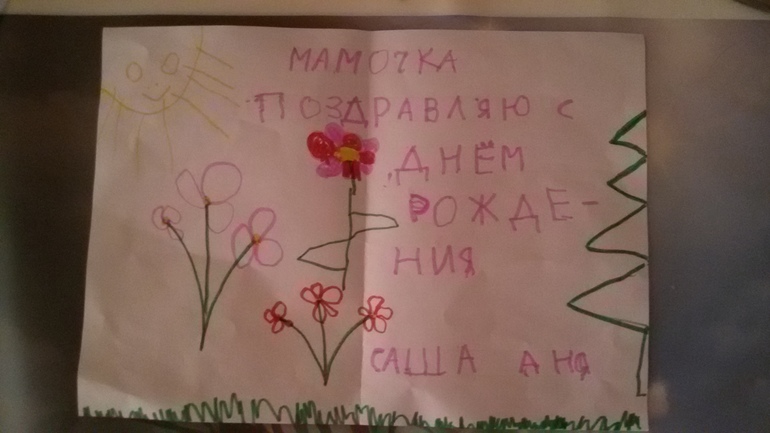 МАМОЧКА
ПОЗДРАВЛЯЮ С
ДНЁМ
РОЖДЕ-
НИЯ
САША АНЯ